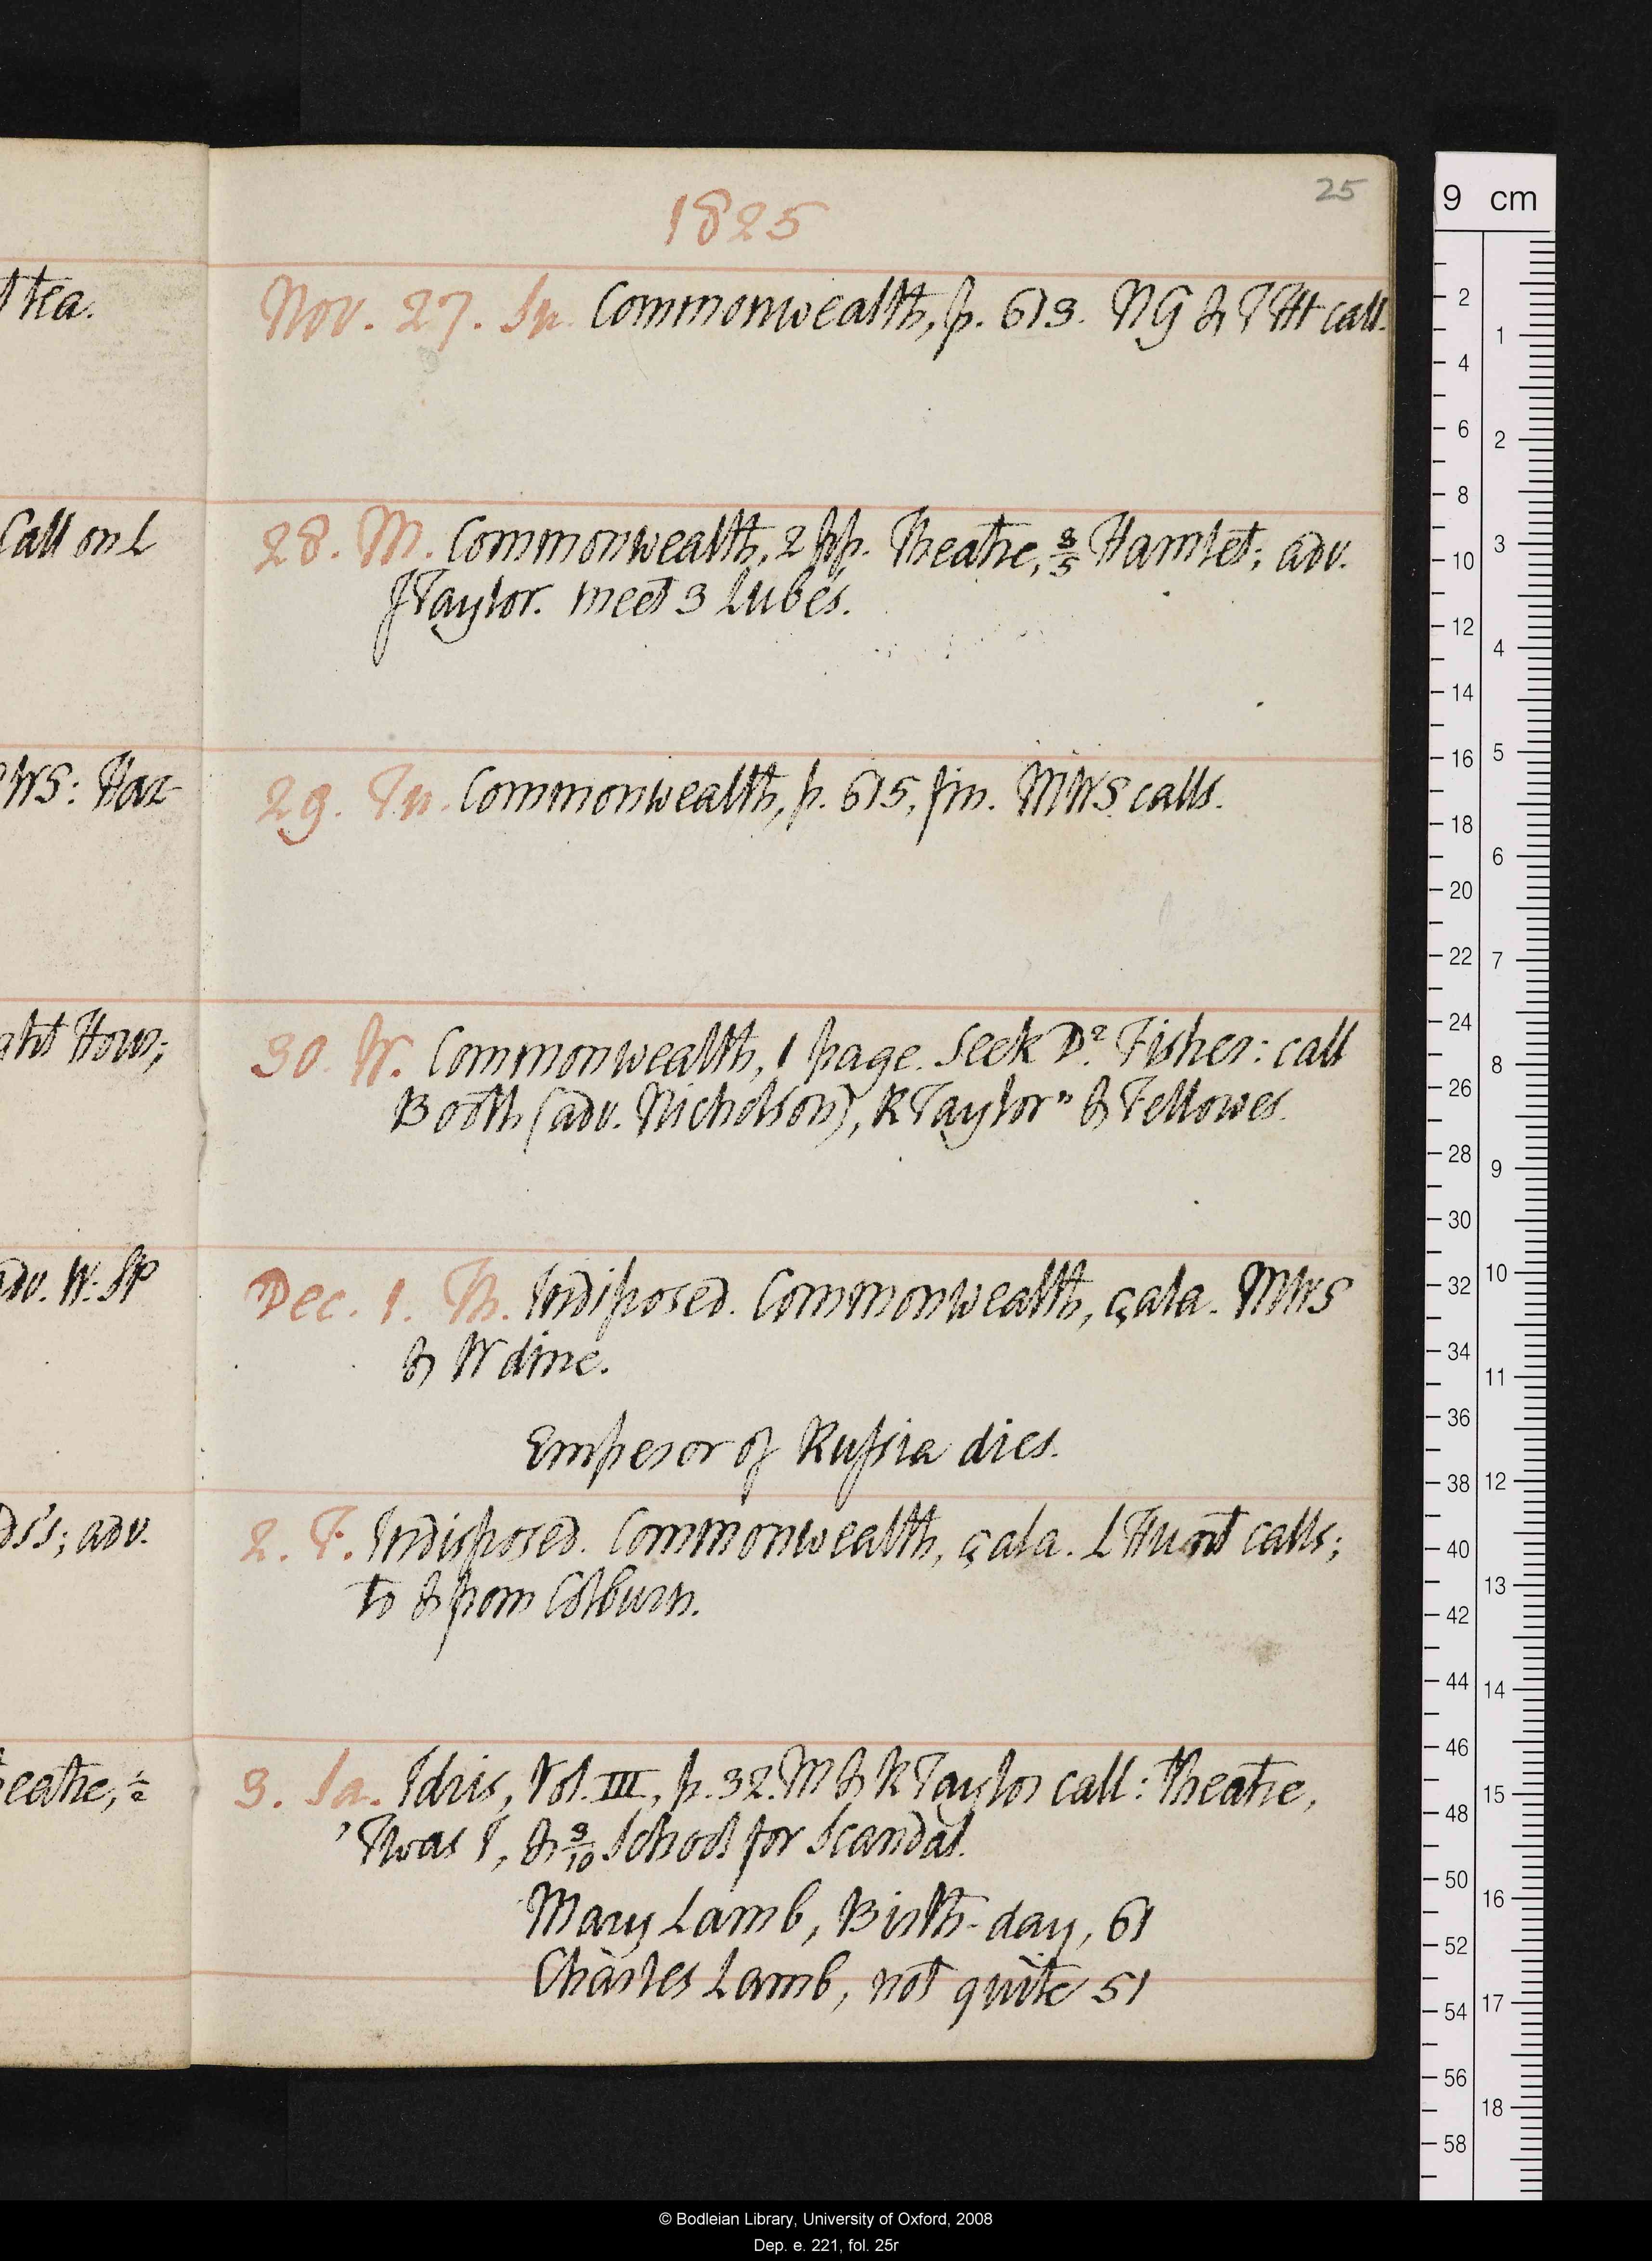 25
1825
t tea.
Nov. 27. Su. Commonwealth, p. 613. NG & TH call.
Call on L
28. M. Commonwealth, 2 pp. Theatre, 3/5 Hamlet; adv.
JTaylor. meet 3 Lubés.
WS: Haz-
29. Tu. Commonwealth, p. 615, fin. MWS calls.
30. W. Commonwealth, 1 page. Seek Dr. Fisher: call
Booth (adv. Nicholson), RTaylorn & Fellowes.
adv. W. SP
Dec. 1. Th. Indisposed. Commonwealth, çala. MWS
& W dine.
Emperor of Russia dies.
ds's; adv.
2. F. Indisposed. Commonwealth, çala. LHunt calls;
to & from Colburn.
eatre, 1/2
3. Sa. Idris, Vol. III, p. 32. M & RTaylor call: theatre,
'Twas I, & 3/10 School for Scandal.
Mary Lamb, Birth-day, 61
Charles Lamb, not quite 51
9 cm
2 4 6 8 10 12 14 16 18 20 22 24 26 28 30 32 34 36 38 40 42 44 46 48 50 52 54 56 58
1 2 3 4 5 6 7 8 9 10 11 12 13 14 15 16 17 18
© Bodleian Library, University of Oxford, 2008
Dep. e. 221, fol. 25r